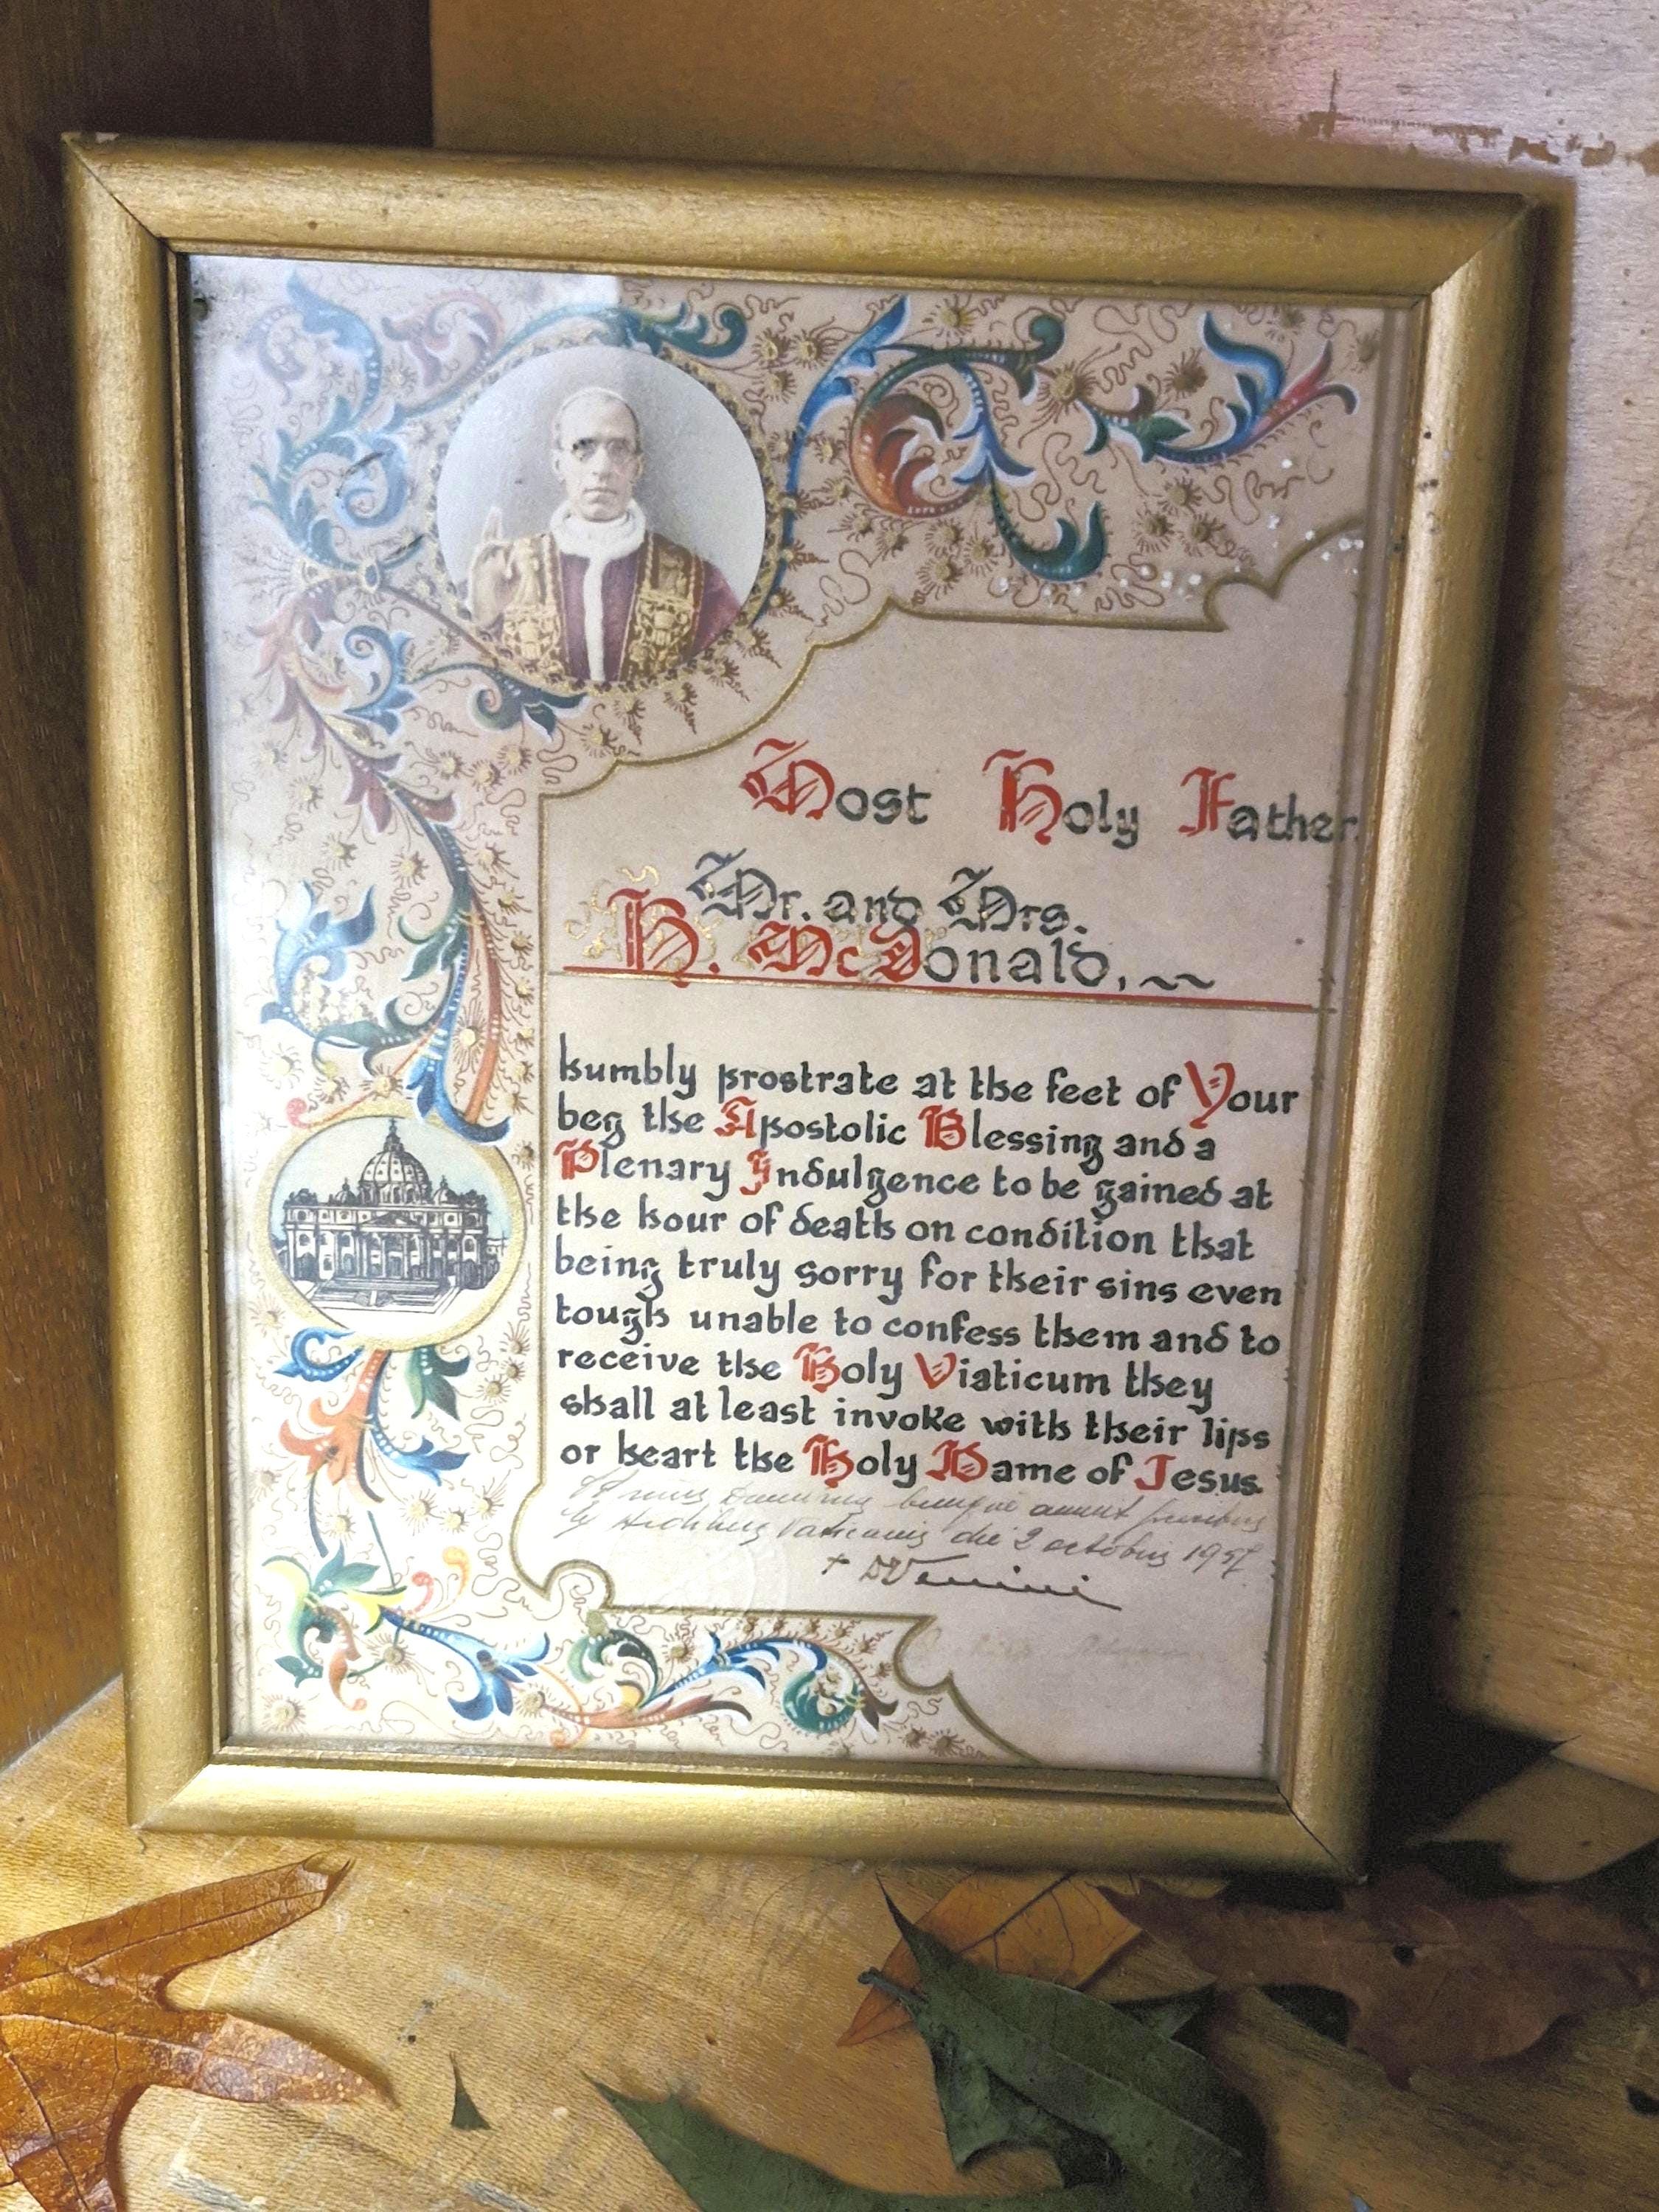 Most Holy Father.
Mr. and Mrs.
H. McDonald, ~~
humbly prostrate at the feet of Your
beg the Apostolic Blessing and a
Plenary Indulgence to be gained at
the hour of death on condition that
being truly sorry for their sins even
tough unable to confess them and to
receive the Holy Viaticum they
shall at least invoke with their lips
or heart the Holy Name of Jesus.
Dominus benigne annuit precibus
Vaticanis die 2 octobris 1957